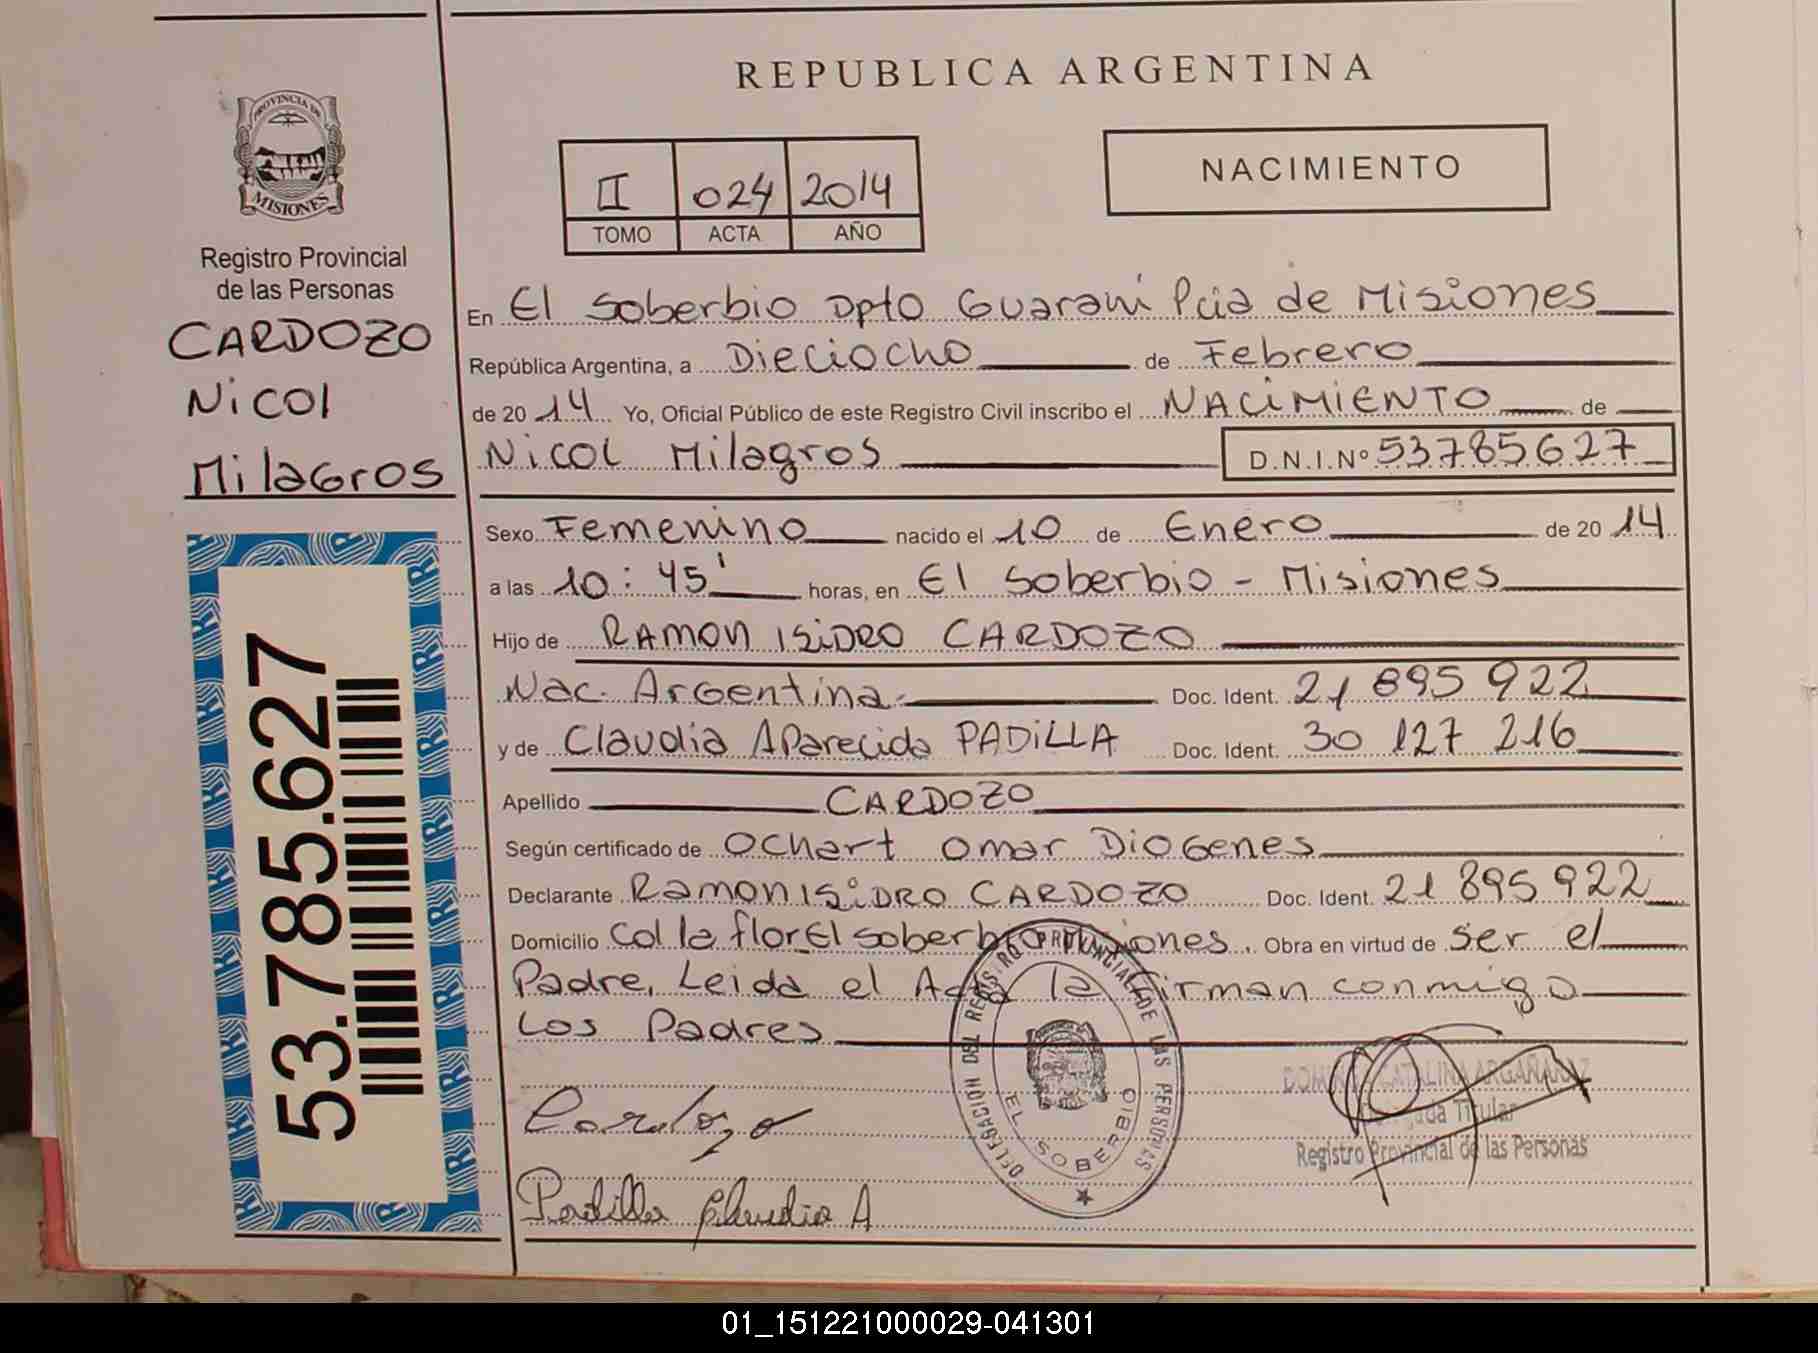 REPUBLICA ARGENTINA
PROVINCIA DE
MISIONES
Registro Provincial
de las Personas
CARDOZO
Nicol
Milagros
53.785.627
II 024 2014
TOMO ACTA AÑO
NACIMIENTO
En El Soberbio Dpto Guarani Pcia de Misiones
República Argentina, a Dieciocho de Febrero
de 20 14 Yo, Oficial Público de este Registro Civil inscribo el NACIMIENTO de
Nicol Milagros D.N.I.Nº 53785627
Sexo Femenino nacido el 10 de Enero de 20 14
a las 10:45' horas, en El Soberbio - Misiones
Hijo de RAMON ISIDRO CARDOZO
Nac. Argentina. Doc. Ident. 21 895 922
y de Claudia Aparecida PADILLA Doc. Ident. 30 127 216
Apellido CARDOZO
Según certificado de Ochart Omar Diogenes
Declarante RAMON ISIDRO CARDOZO Doc. Ident. 21 895 922
Domicilio Col la flor El Soberbio Misiones. Obra en virtud de ser el
Padre, Leida el Acta la firman conmigo
Los Padres
Cardozo
Padilla Claudia A
DELEGACIÓN DEL REGISTRO PROVINCIAL DE LAS PERSONAS
EL SOBERBIO
CATALINA ARGAÑARAZ
Titular
Registro Provincial de las Personas
01_151221000029-041301